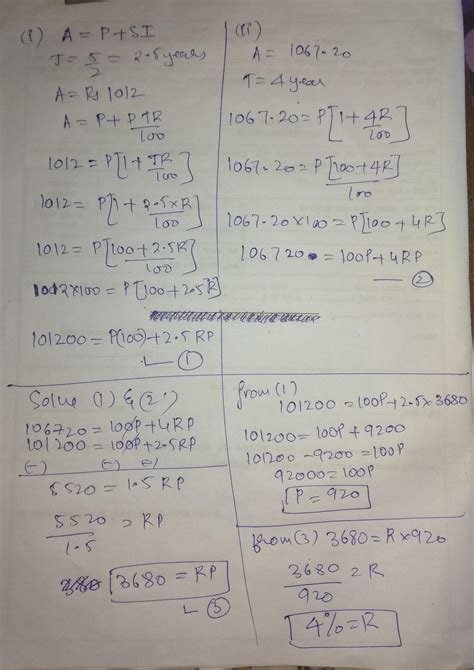 (i) A = P+SI
T = 5/2 = 2.5 years
A = Rs 1012
A = P + PTR/100
1012 = P[1 + TR/100]
1012 = P[1 + 2.5×R/100]
1012 = P[100 + 2.5R/100]
1012×100 = P[100 + 2.5R]
101200 = P(100) + 2.5 RP
(1)
(ii)
A = 1067.20
T = 4 year
1067.20 = P[1 + 4R/100]
1067.20 = P[100+4R/100]
1067.20×100 = P[100+4R]
106720 = 100P + 4RP
(2)
Solve (1) & (2)
106720 = 100P + 4RP
101200 = 100P + 2.5RP
(-) (-) (-)
5520 = 1.5 RP
5520/1.5 = RP
3680 = RP
(3)
from (1)
101200 = 100P + 2.5×3680
101200 = 100P + 9200
101200 - 9200 = 100P
92000 = 100P
P = 920
from (3) 3680 = R×920
3680/920 = R
4% = R